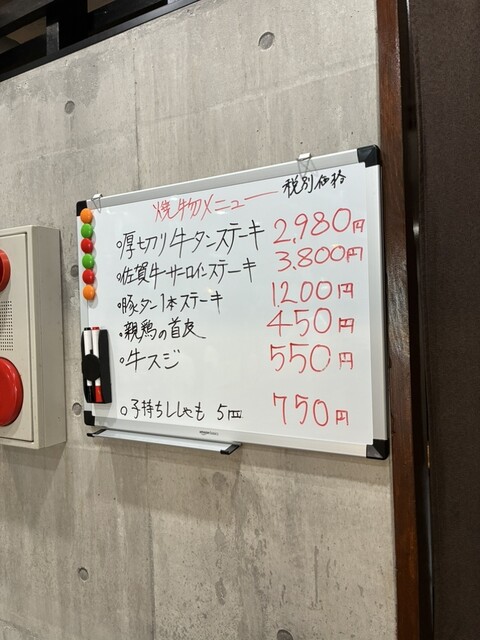 焼物メニュー 税別価格
○厚切り牛タンステーキ 2,980円
○佐賀牛サーロインステーキ 3,800円
○豚タン1本ステーキ 1,200円
○親鶏の首皮 450円
○牛スジ 550円
○子持ちししゃも 5匹 750円